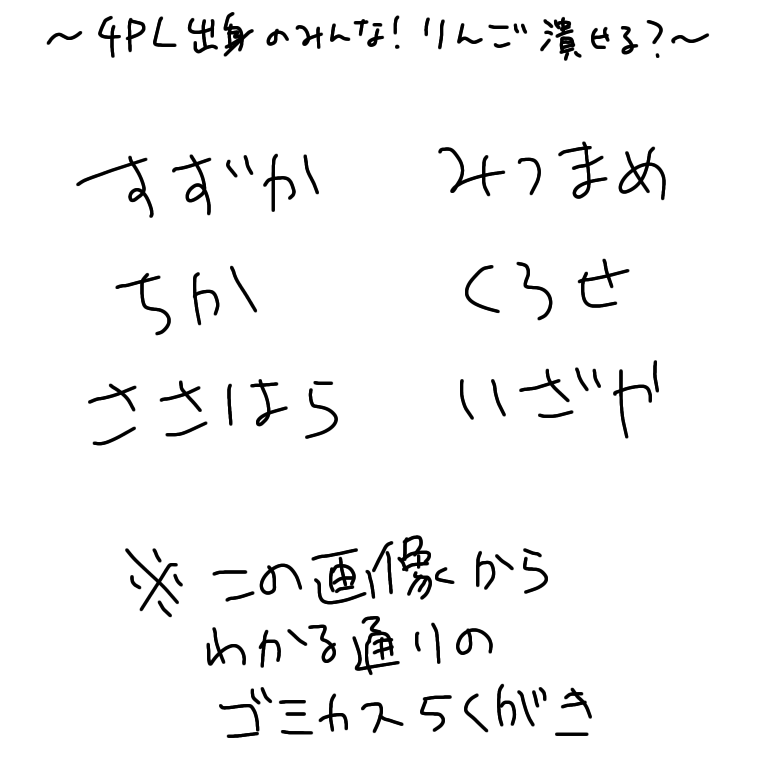 〜4PL出身のみんな！りんご潰せる？〜
すずか みつまめ
ちか くろせ
ささはら いざや
※この画像から
わかる通りの
ゴミカスらくがき